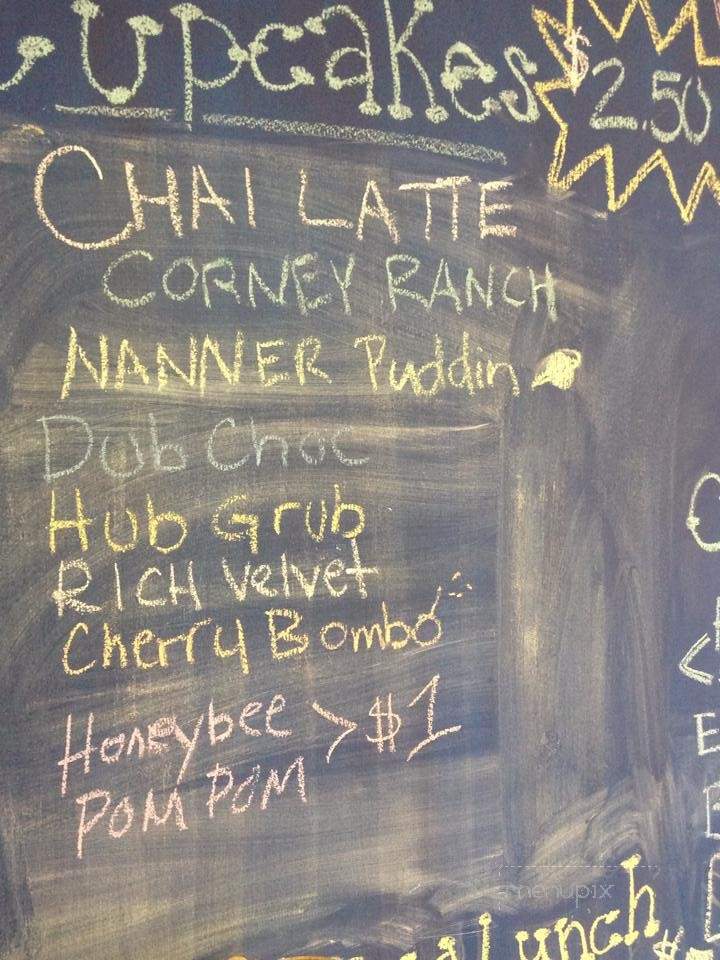 Cupcakes $2.50
CHAI LATTE
CORNEY RANCH
NANNER Puddin
Dub Choc
Hub Grub
RICH Velvet
Cherry Bombo
Honeybee > $1
POM POM
menupix
Lunch $